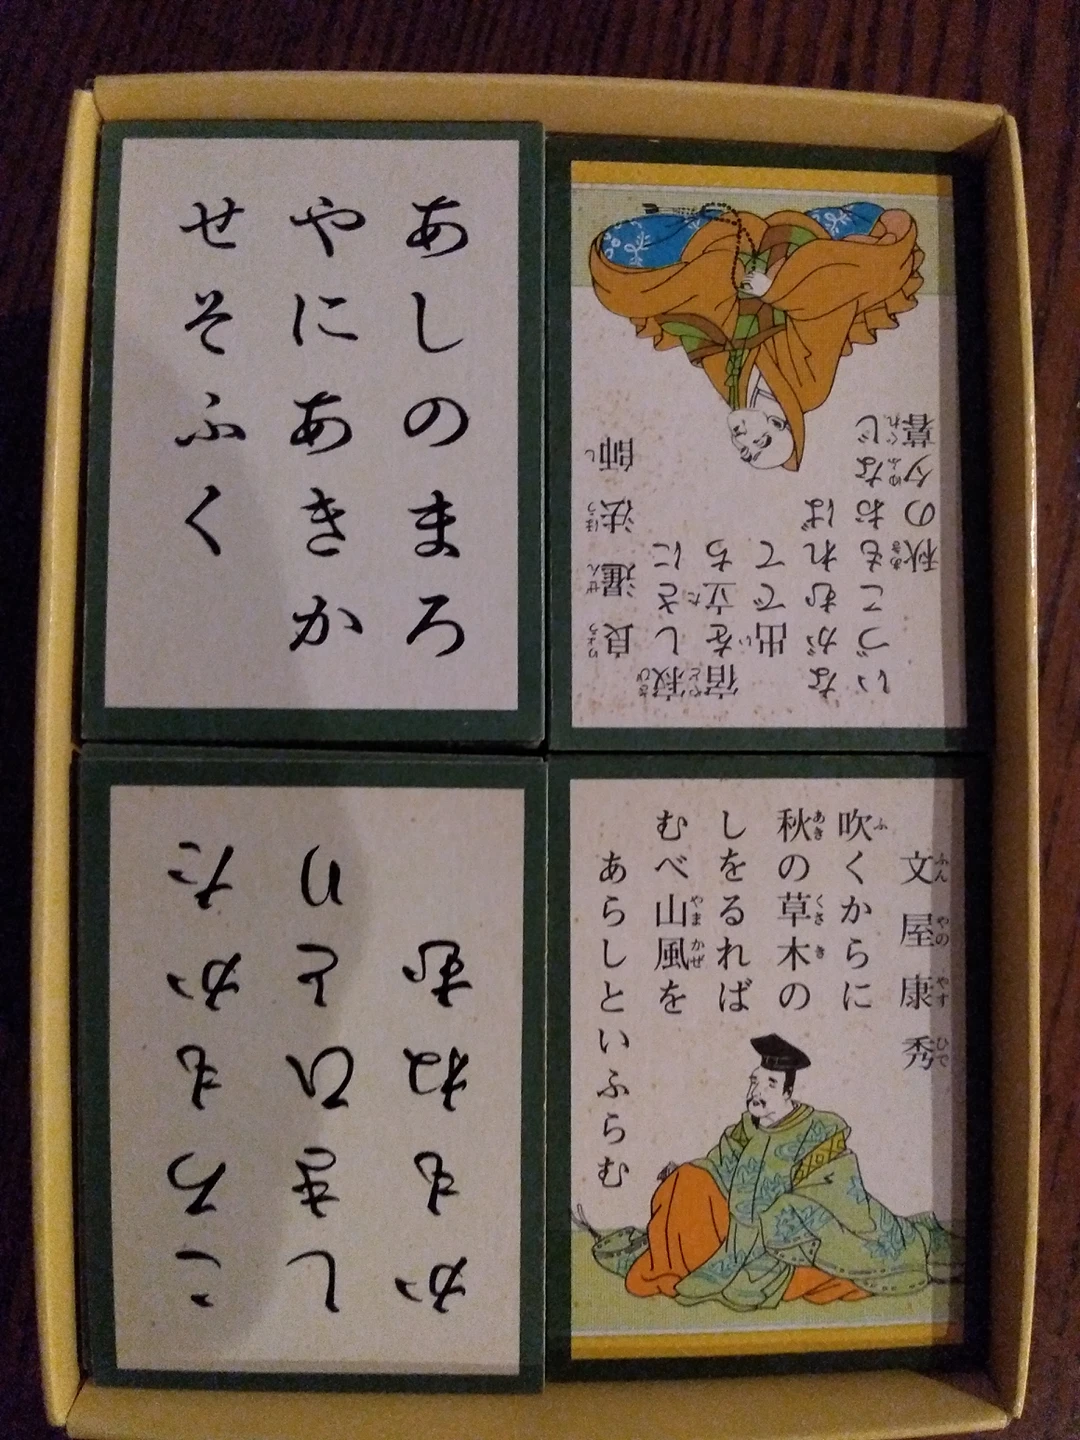 あしのまろ
やにあきか
せそふく
良暹法師
寂しさに
宿を立ち
出でて
ながむれば
いづこもおなじ
秋の夕暮
ころもかた
しきひとり
かもねむ
文屋康秀
吹くからに
秋の草木の
しをるれば
むべ山風を
あらしといふらむ